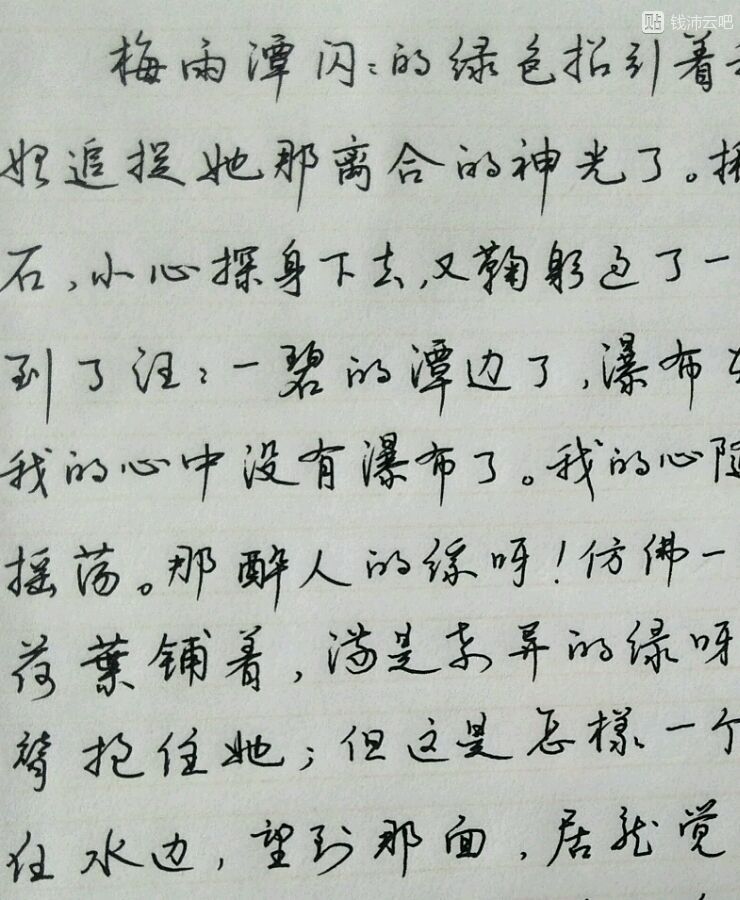 钱沛云吧
梅雨潭闪：的绿色招引着
始追捉她那离合的神光了。揪
石，小心探身下去，又鞠躬过了一
到了汪：一碧的潭边了，瀑布
我的心中没有瀑布了。我的心随
摇荡。那醉人的绿呀！仿佛一
荷葉铺着，满是奇异的绿呀
臂抱住她；但这是怎樣一个
在水边，望到那面，居然觉